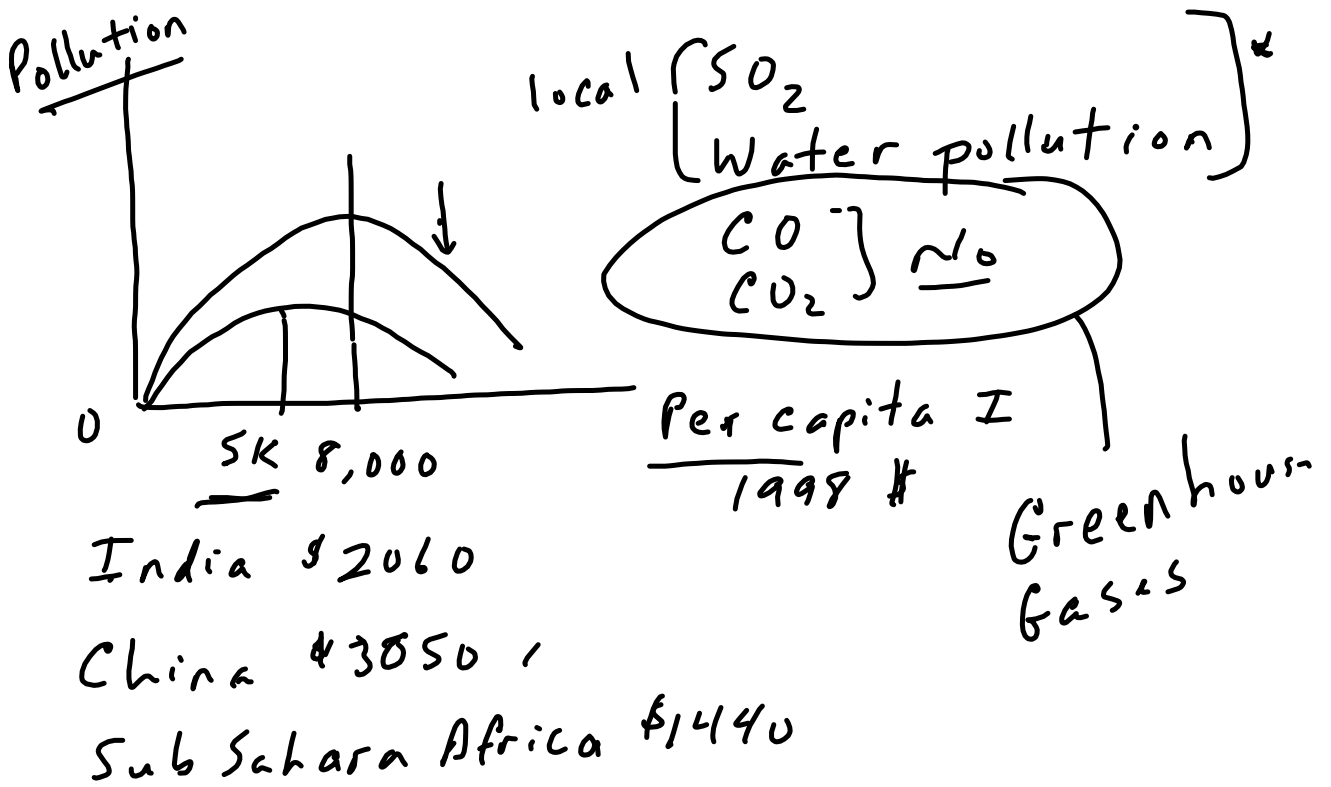 Pollution
local SO2 *
Water pollution
CO
CO2 No
0
5K 8,000
Per capita I
1998 $
Greenhouse
Gases
India $2060
China $3050
Sub Sahara Africa $1440